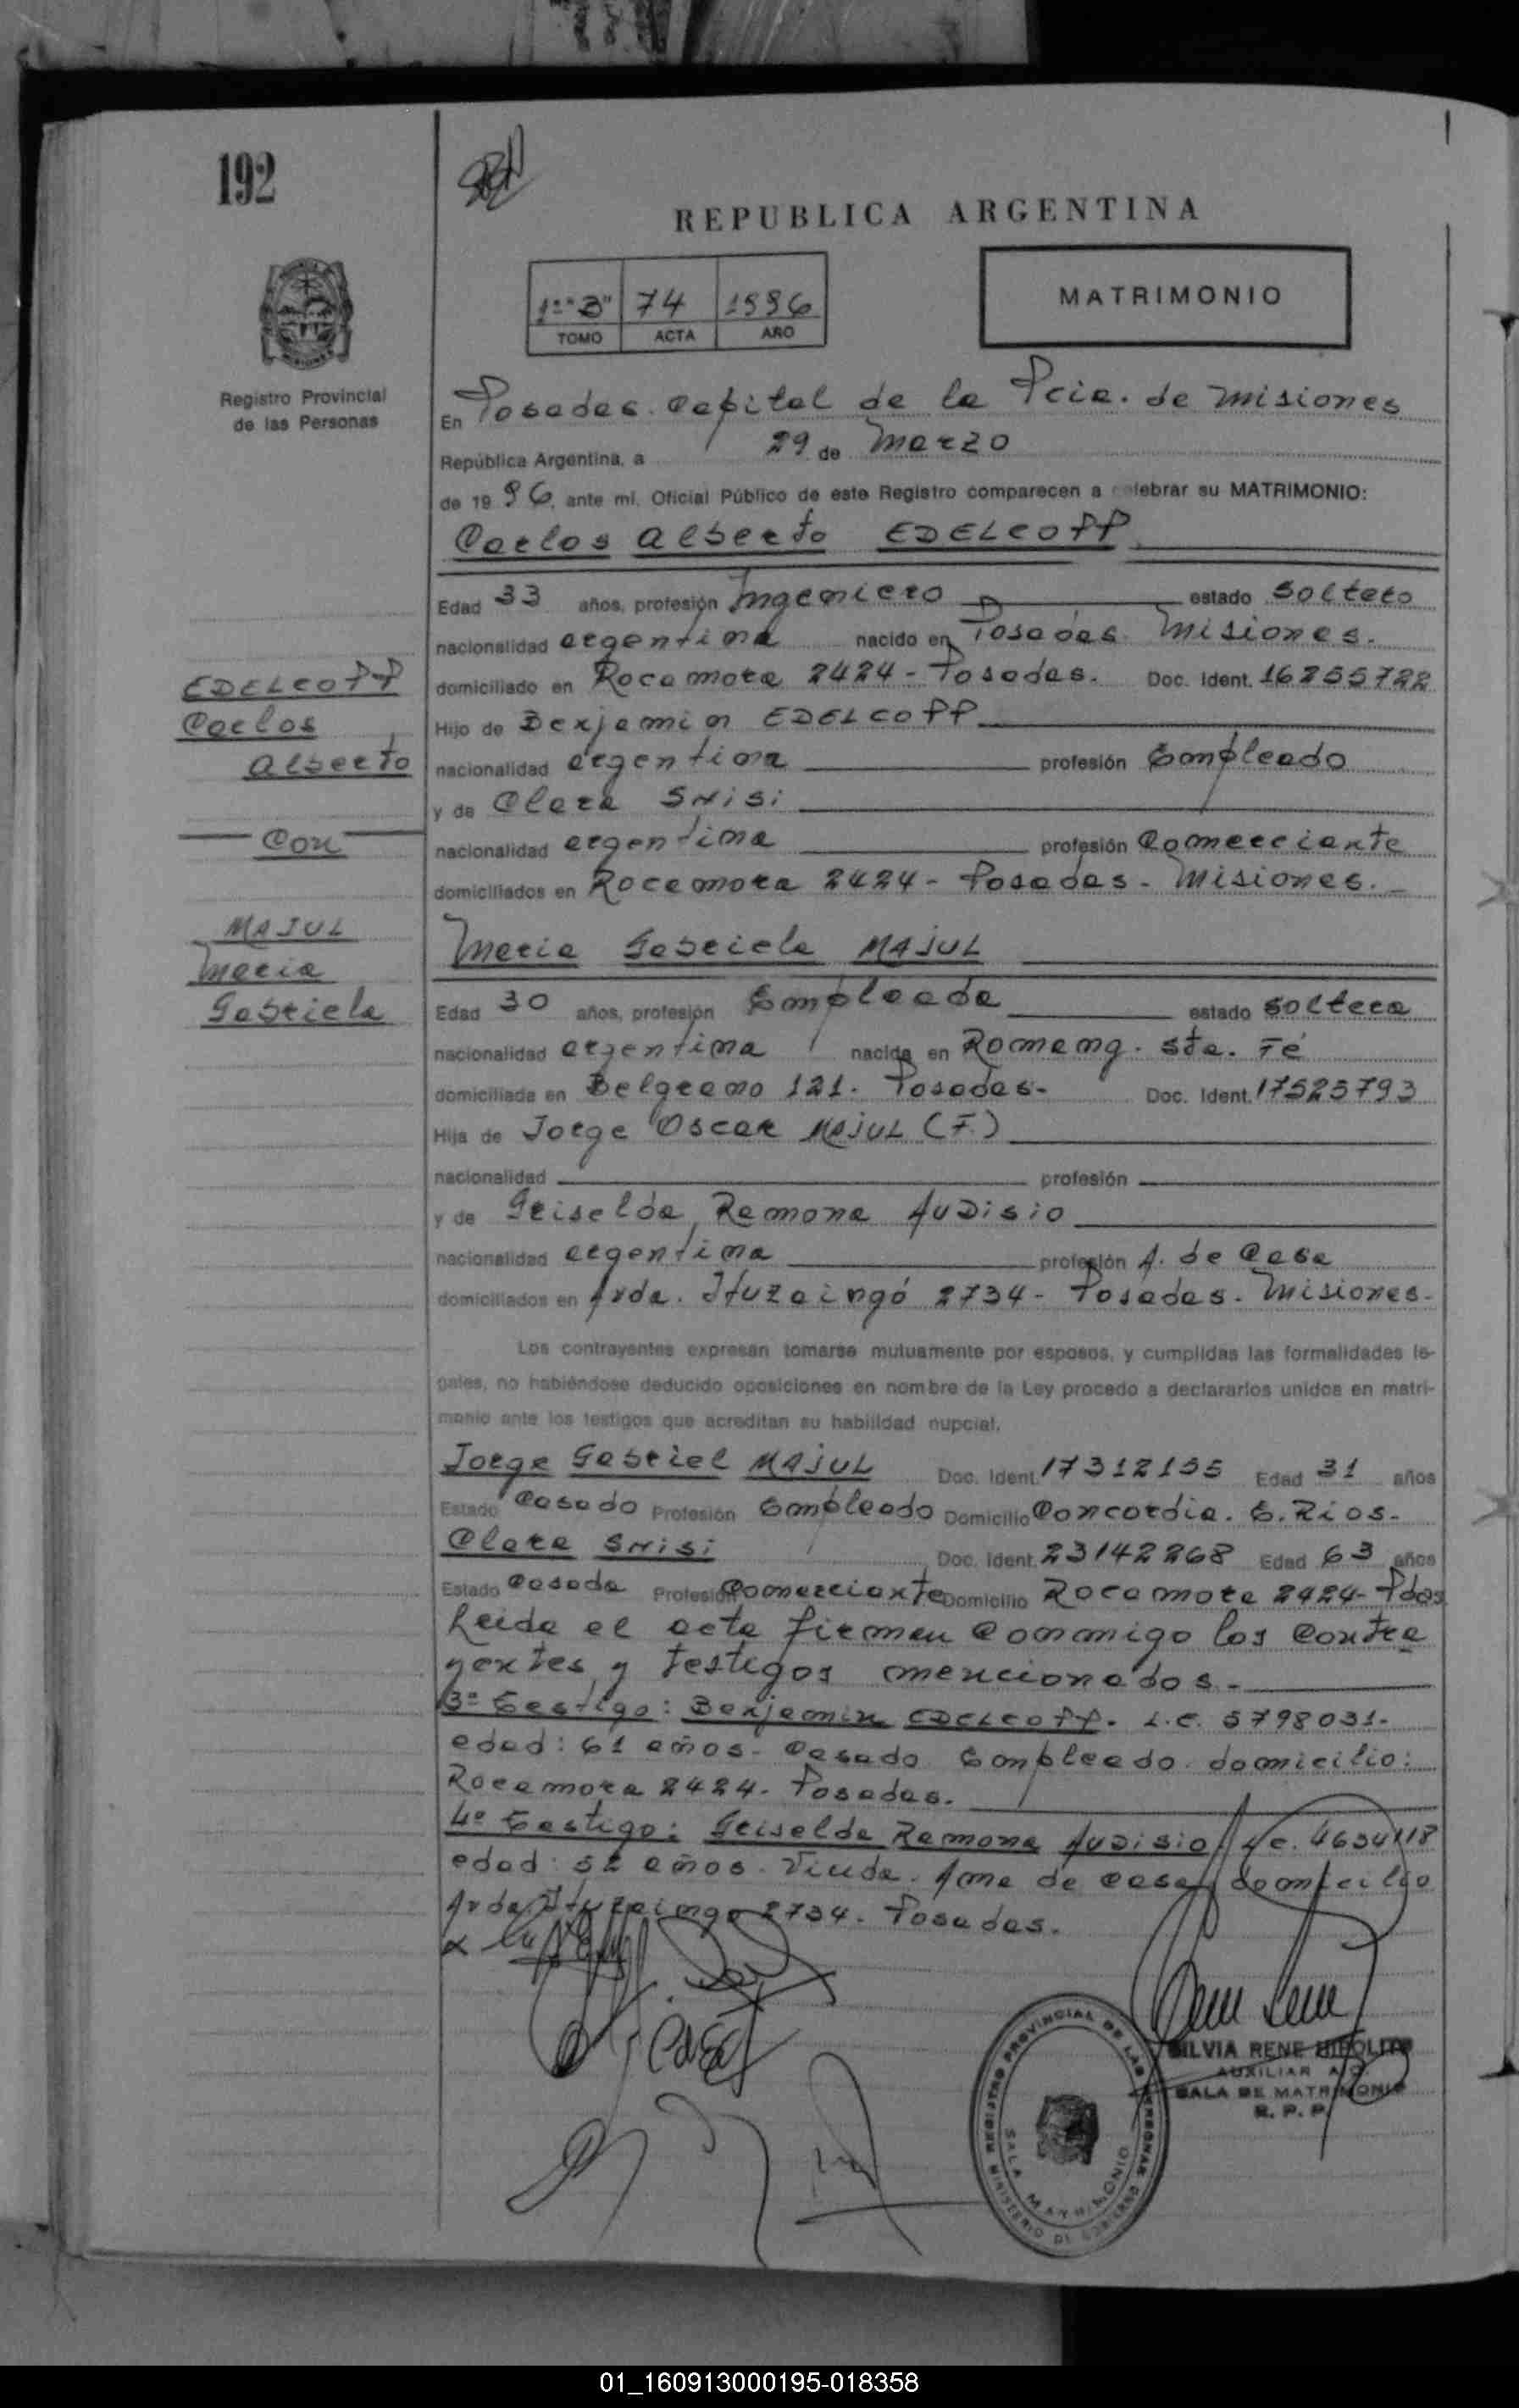 192
REPUBLICA ARGENTINA
1º "B" 74 1996
TOMO ACTA AÑO
MATRIMONIO
Registro Provincial
de las Personas
En Posadas. Capital de la Pcia. de Misiones
República Argentina, a 29 de Marzo
de 1996, ante mí, Oficial Público de este Registro comparecen a celebrar su MATRIMONIO:
Carlos Alberto EDELCOPP
Edad 33 años, profesión Ingeniero estado Soltero
nacionalidad argentina nacido en Posadas. Misiones.
domiciliado en Rocamora 2424 - Posadas. Doc. Ident. 16255722
Hijo de Benjamin EDELCOPP
nacionalidad argentina profesión Empleado
y de Clara SNISI
nacionalidad argentina profesión Comerciante
domiciliados en Rocamora 2424 - Posadas - Misiones.
EDELCOPP
Carlos
Alberto
Con
MAJUL
Maria
Gabriela
Maria Gabriela MAJUL
Edad 30 años, profesión Empleada estado Soltera
nacionalidad argentina nacida en Romang. Sta. Fé
domiciliada en Belgrano 121. Posadas- Doc. Ident. 17525793
Hija de Jorge Oscar MAJUL (F.)
nacionalidad profesión
y de Griselda Ramona AUDISIO
nacionalidad argentina profesión A. de Casa
domiciliados en Avda. Ituzaingó 2734 - Posadas. Misiones-
Los contrayentes expresan tomarse mutuamente por esposos, y cumplidas las formalidades le-
gales, no habiéndose deducido oposiciones en nombre de la Ley procedo a declararlos unidos en matri-
monio ante los testigos que acreditan su habilidad nupcial.
Jorge Gabriel MAJUL Doc. Ident. 17312155 Edad 31 años
Estado Casado Profesión Empleado Domicilio Concordia. E. Rios-
Clara SNISI Doc. Ident. 23142268 Edad 63 años
Estado Casada Profesión Comerciante Domicilio Rocamora 2424- Pdas
Leida el acta firman conmigo los contra
yentes y testigos mencionados.-
3º Testigo: Benjamin EDELCOPP. L.E. 5798031-
edad: 61 años- Casado Empleado domicilio:
Rocamora 2424- Posadas.
4º Testigo: Griselda Ramona AUDISIO L.C. 4634118
edad: 52 años. Viuda. Ama de casa domicilio
Avda. Ituzaingo 2734. Posadas.
REGISTRO PROVINCIAL DE LAS PERSONAS
MINISTERIO DE GOBIERNO
SALA MATRIMONIO
SILVIA RENE HIPOLITO
AUXILIAR
SALA DE MATRIMONIO
R. P. P.
01_160913000195-018358